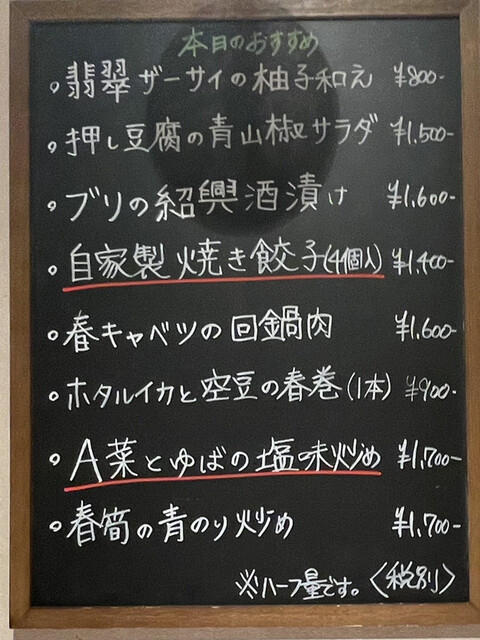 本日のおすすめ
。翡翠ザーサイの柚子和え ¥800-
。押し豆腐の青山椒サラダ ¥1,500-
。ブリの紹興酒漬け ¥1,600-
。自家製焼き餃子(4個入) ¥1,400-
。春キャベツの回鍋肉 ¥1,600-
。ホタルイカと空豆の春巻(1本) ¥900-
。A菜とゆばの塩味炒め ¥1,700-
。春筍の青のり炒め ¥1,700-
※ハーフ量です。〈税別〉